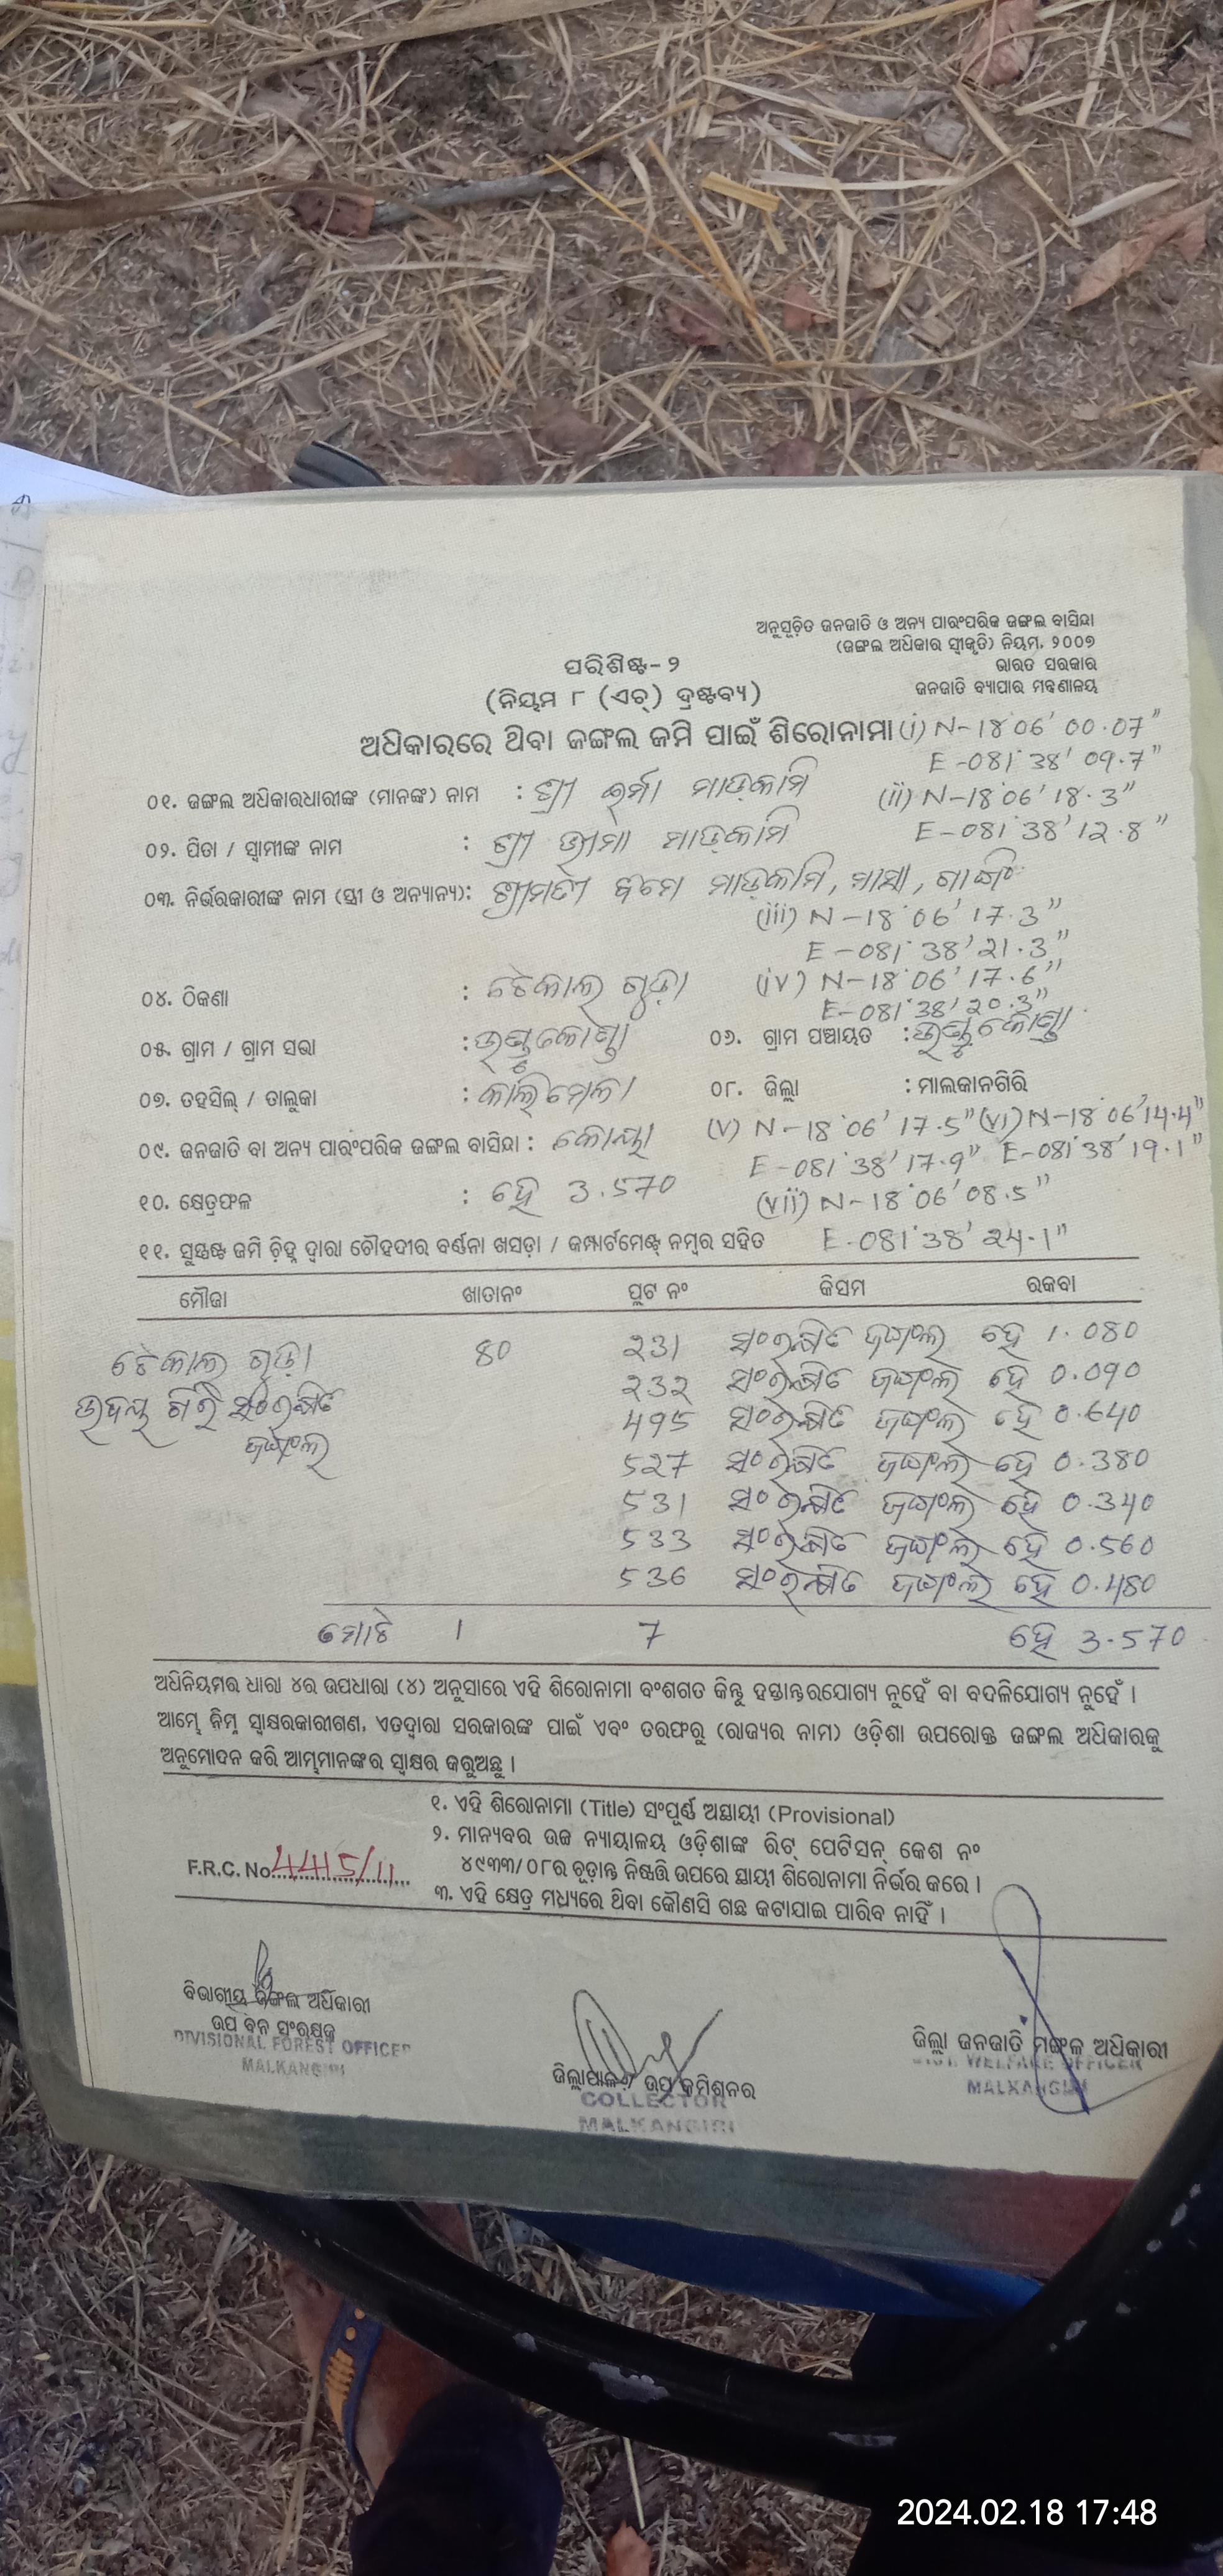 ଅନୁସୂଚିତ ଜନଜାତି ଓ ଅନ୍ୟ ପାରଂପରିକ ଜଙ୍ଗଲ ବାସିନ୍ଦା
(ଜଙ୍ଗଲ ଅଧିକାର ସ୍ୱୀକୃତି) ନିୟମ, ୨୦୦୭
ଭାରତ ସରକାର
ଜନଜାତି ବ୍ୟାପାର ମନ୍ତ୍ରଣାଳୟ
ପରିଶିଷ୍ଟ-୨
(ନିୟମ ୮ (ଏଚ୍) ଦ୍ରଷ୍ଟବ୍ୟ)
ଅଧିକାରରେ ଥିବା ଜଙ୍ଗଲ ଜମି ପାଇଁ ଶିରୋନାମା (i) N-18°06' 00.07"
E-081°38' 09.7"
୦୧. ଜଙ୍ଗଲ ଅଧିକାରଧାରୀଙ୍କ (ମାନଙ୍କ) ନାମ : ଶ୍ରୀ ଇର୍ମା ମାଡ୍‌କାମି (ii) N-18°06' 18.3"
E-081°38' 12.8"
୦୨. ପିତା / ସ୍ୱାମୀଙ୍କ ନାମ : ଶ୍ରୀ ଭୀମା ମାଡ୍‌କାମି
୦୩. ନିର୍ଭରକାରୀଙ୍କ ନାମ (ସ୍ତ୍ରୀ ଓ ଅନ୍ୟାନ୍ୟ): ଶ୍ରୀମତୀ ମାଡ୍‌କାମି,
(iii) N-18°06' 17.3"
E-081°38' 21.3"
୦୪. ଠିକଣା : ଟେକାଲ ଗୁଡ଼ା (iv) N-18°06' 17.6"
E-081°38' 20.3"
୦୫. ଗ୍ରାମ / ଗ୍ରାମ ସଭା : ୦୬. ଗ୍ରାମ ପଞ୍ଚାୟତ :
୦୭. ତହସିଲ୍ / ତାଲୁକା : କାଲିମେଳା ୦୮. ଜିଲ୍ଲା : ମାଲକାନଗିରି
(v) N-18°06' 17.5" (vi) N-18°06' 14.4"
୦୯. ଜନଜାତି ବା ଅନ୍ୟ ପାରଂପରିକ ଜଙ୍ଗଲ ବାସିନ୍ଦା : କୋୟା E-081°38' 17.9" E-081°38' 19.1"
୧୦. କ୍ଷେତ୍ରଫଳ : ହେ 3.570 (vii) N-18°06' 08.5"
୧୧. ସୁସ୍ପଷ୍ଟ ଜମି ଚିହ୍ନ ଦ୍ୱାରା ଚୌହଦୀର ବର୍ଣ୍ଣନା ଖସଡ଼ା / କମ୍ପାର୍ଟମେଣ୍ଟ୍ ନମ୍ବର ସହିତ E-081°38' 24.1"
ମୌଜା ଖାତାନଂ ପ୍ଲଟ ନଂ କିସମ ରକବା
ଟେକାଲ ଗୁଡ଼ା 80 231 ସଂରକ୍ଷିତ ଜଙ୍ଗଲ ହେ 1.080
232 ସଂରକ୍ଷିତ ଜଙ୍ଗଲ ହେ 0.090
ଉଦୟ ଗିରି ସଂରକ୍ଷିତ 495 ସଂରକ୍ଷିତ ଜଙ୍ଗଲ ହେ 0.640
ଜଙ୍ଗଲ 527 ସଂରକ୍ଷିତ ଜଙ୍ଗଲ ହେ 0.380
531 ସଂରକ୍ଷିତ ଜଙ୍ଗଲ ହେ 0.340
533 ସଂରକ୍ଷିତ ଜଙ୍ଗଲ ହେ 0.560
536 ସଂରକ୍ଷିତ ଜଙ୍ଗଲ ହେ 0.480
ମୋଟ 1 7 ହେ 3.570
ଅଧିନିୟମର ଧାରା ୪ର ଉପଧାରା (୪) ଅନୁସାରେ ଏହି ଶିରୋନାମା ବଂଶଗତ କିନ୍ତୁ ହସ୍ତାନ୍ତରଯୋଗ୍ୟ ନୁହେଁ ବା ବଦଳିଯୋଗ୍ୟ ନୁହେଁ ।
ଆମ୍ଭେ ନିମ୍ନ ସ୍ୱାକ୍ଷରକାରୀଗଣ, ଏତଦ୍ୱାରା ସରକାରଙ୍କ ପାଇଁ ଏବଂ ତରଫରୁ (ରାଜ୍ୟର ନାମ) ଓଡ଼ିଶା ଉପରୋକ୍ତ ଜଙ୍ଗଲ ଅଧିକାରକୁ
ଅନୁମୋଦନ କରି ଆମ୍ଭମାନଙ୍କର ସ୍ୱାକ୍ଷର କରୁଅଛୁ ।
୧. ଏହି ଶିରୋନାମା (Title) ସଂପୂର୍ଣ୍ଣ ଅସ୍ଥାୟୀ (Provisional)
୨. ମାନ୍ୟବର ଉଚ୍ଚ ନ୍ୟାୟାଳୟ ଓଡ଼ିଶାଙ୍କ ରିଟ୍ ପେଟିସନ୍ କେଶ ନଂ
F.R.C. No. 4415/11 ୪୯୩୩/୦୮ର ଚୂଡ଼ାନ୍ତ ନିଷ୍ପତ୍ତି ଉପରେ ସ୍ଥାୟୀ ଶିରୋନାମା ନିର୍ଭର କରେ ।
୩. ଏହି କ୍ଷେତ୍ର ମଧ୍ୟରେ ଥିବା କୌଣସି ଗଛ କଟାଯାଇ ପାରିବ ନାହିଁ ।
ବିଭାଗୀୟ ଜଙ୍ଗଲ ଅଧିକାରୀ
ଉପ ବନ ସଂରକ୍ଷକ
DIVISIONAL FOREST OFFICER
MALKANGIRI
ଜିଲ୍ଲାପାଳ / ଉପ କମିଶନର
COLLECTOR
MALKANGIRI
ଜିଲ୍ଲା ଜନଜାତି ମଙ୍ଗଳ ଅଧିକାରୀ
DIST. WELFARE OFFICER
MALKANGIRI
2024.02.18 17:48